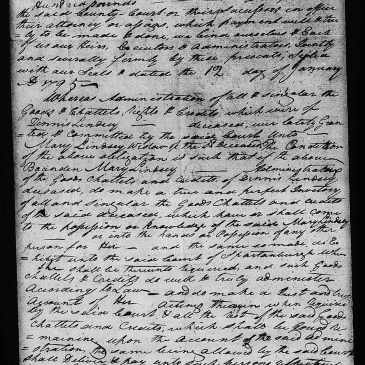 Hundred pounds
the said County Court or their successors in office
their attorney or assigns, which payment well & tru
ly to be made & done, we bind ourselves & Each
of us our Heirs, Executors & Administrators, Jointly
and severally firmly by these presents, Sealed
with our Seals & dated the 12 day of January
Whereas Administration of all & singular the
Goods & Chattels, Rights & Credits which were of
Dennis Lindsey deceased, was lately Gran
ted & Committed by the said Court Unto
Mary Lindsey Widow of the Sd deceased, the Condition
of the above obligation is such that if the above
Bounden Mary Lindsey
of the Goods Chattels and Credits of Dennis Lindsey
deceased, do make a true and perfect Inventory
of all and singular the Goods Chattels and credits
of the said deceased, which have or shall come
to the possession or Knowledge of the said Mary Lindsey
or into the hands or Possession of any other
person for Her and the same so made do Ex
hibit unto the said Court of Spartanburgh when
She shall be thereunto required, and such Goods
Chattels & Credits do well & truly administer
According to Law and do make a Just and true
Account of Her Acting therein when required
by the said Court & all the Rest of the said Goods
Chattels and Credits, which shall be found re
maining upon the Account of the said admini
stration, the same being allowed by the said Court
shall Deliver & pay unto such persons